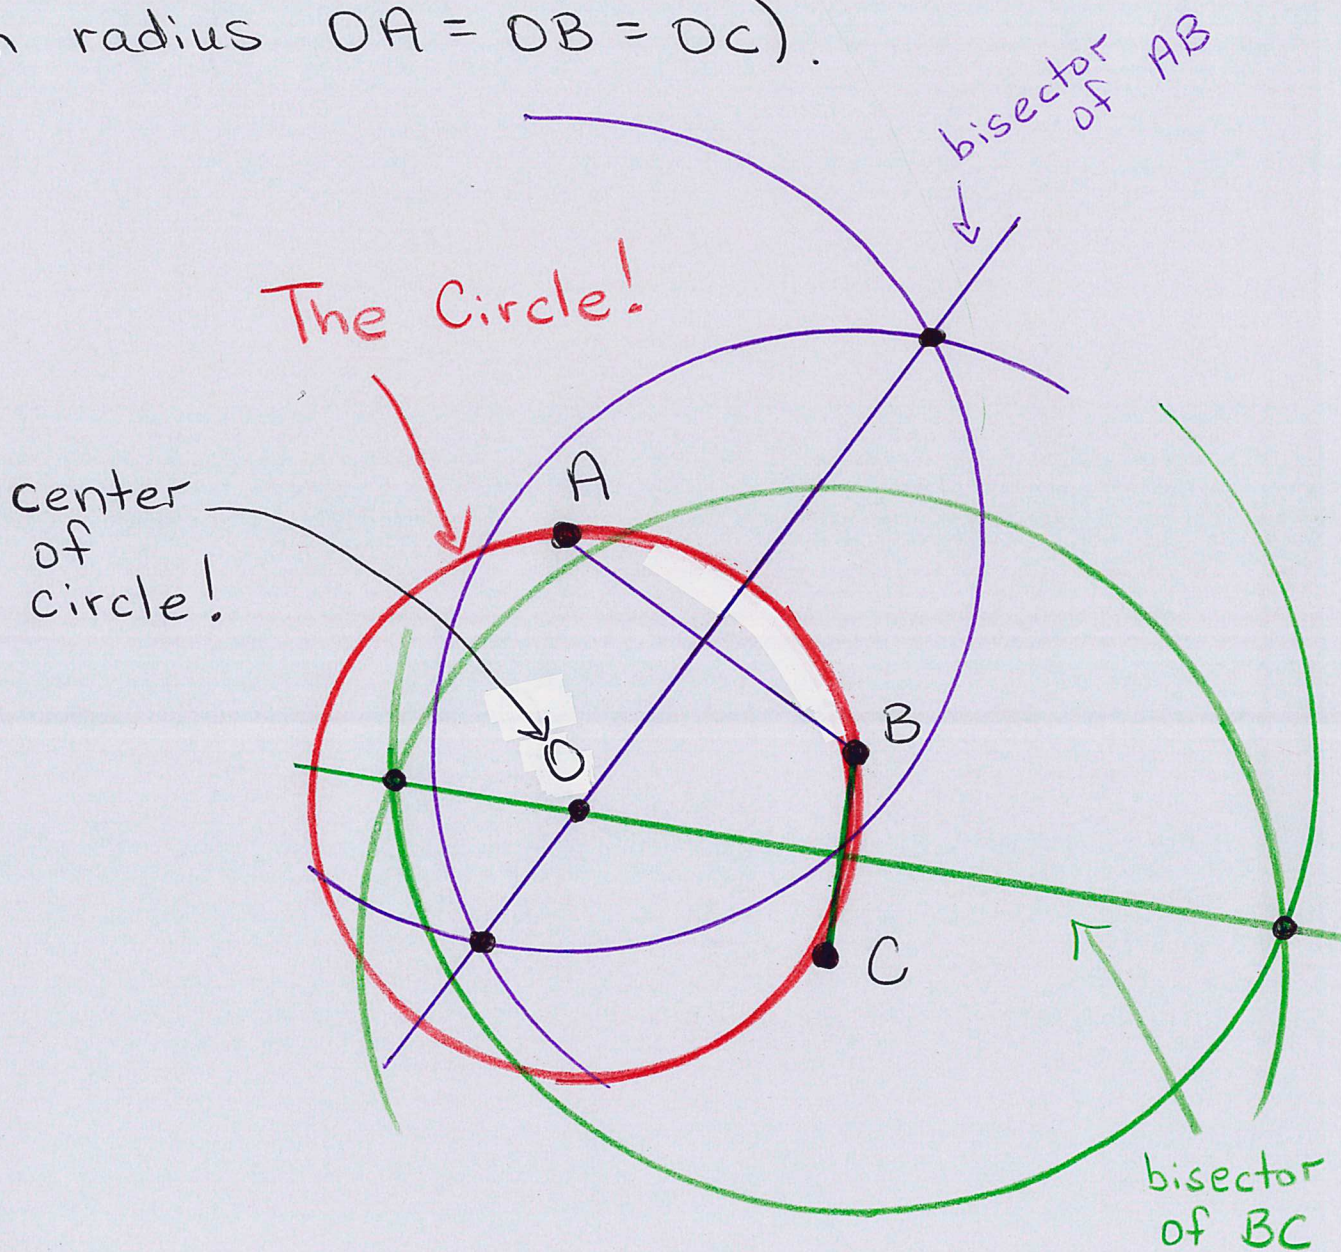 radius OA = OB = OC).
bisector
of AB
The Circle!
A
center
of
circle!
B
O
C
bisector
of BC